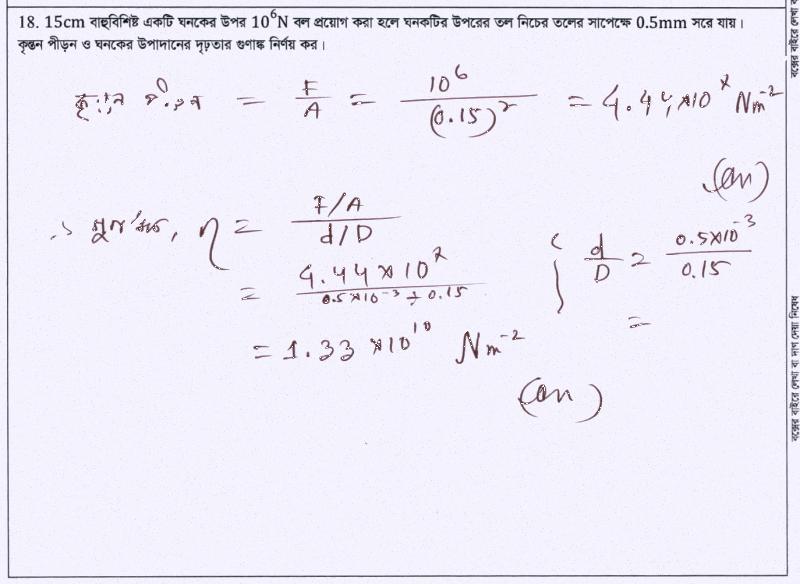 18. 15cm বাহুবিশিষ্ট একটি ঘনকের উপর 10⁶N বল প্রয়োগ করা হলে ঘনকটির উপরের তল নিচের তলের সাপেক্ষে 0.5mm সরে যায়।
কৃন্তন পীড়ন ও ঘনকের উপাদানের দৃঢ়তার গুণাঙ্ক নির্ণয় কর।
কৃন্তন পীড়ন = F/A = 10⁶/(0.15)² = 4.44×10⁷ Nm⁻²
(An)
η = (F/A)/(d/D)
{ d/D = 0.5×10⁻³/0.15
= 4.44×10⁷/0.5×10⁻³ ÷ 0.15
=
= 1.33 ×10¹⁰ Nm⁻²
(An)
বক্সের বাইরে লেখা বা দাগ দেয়া নিষেধ